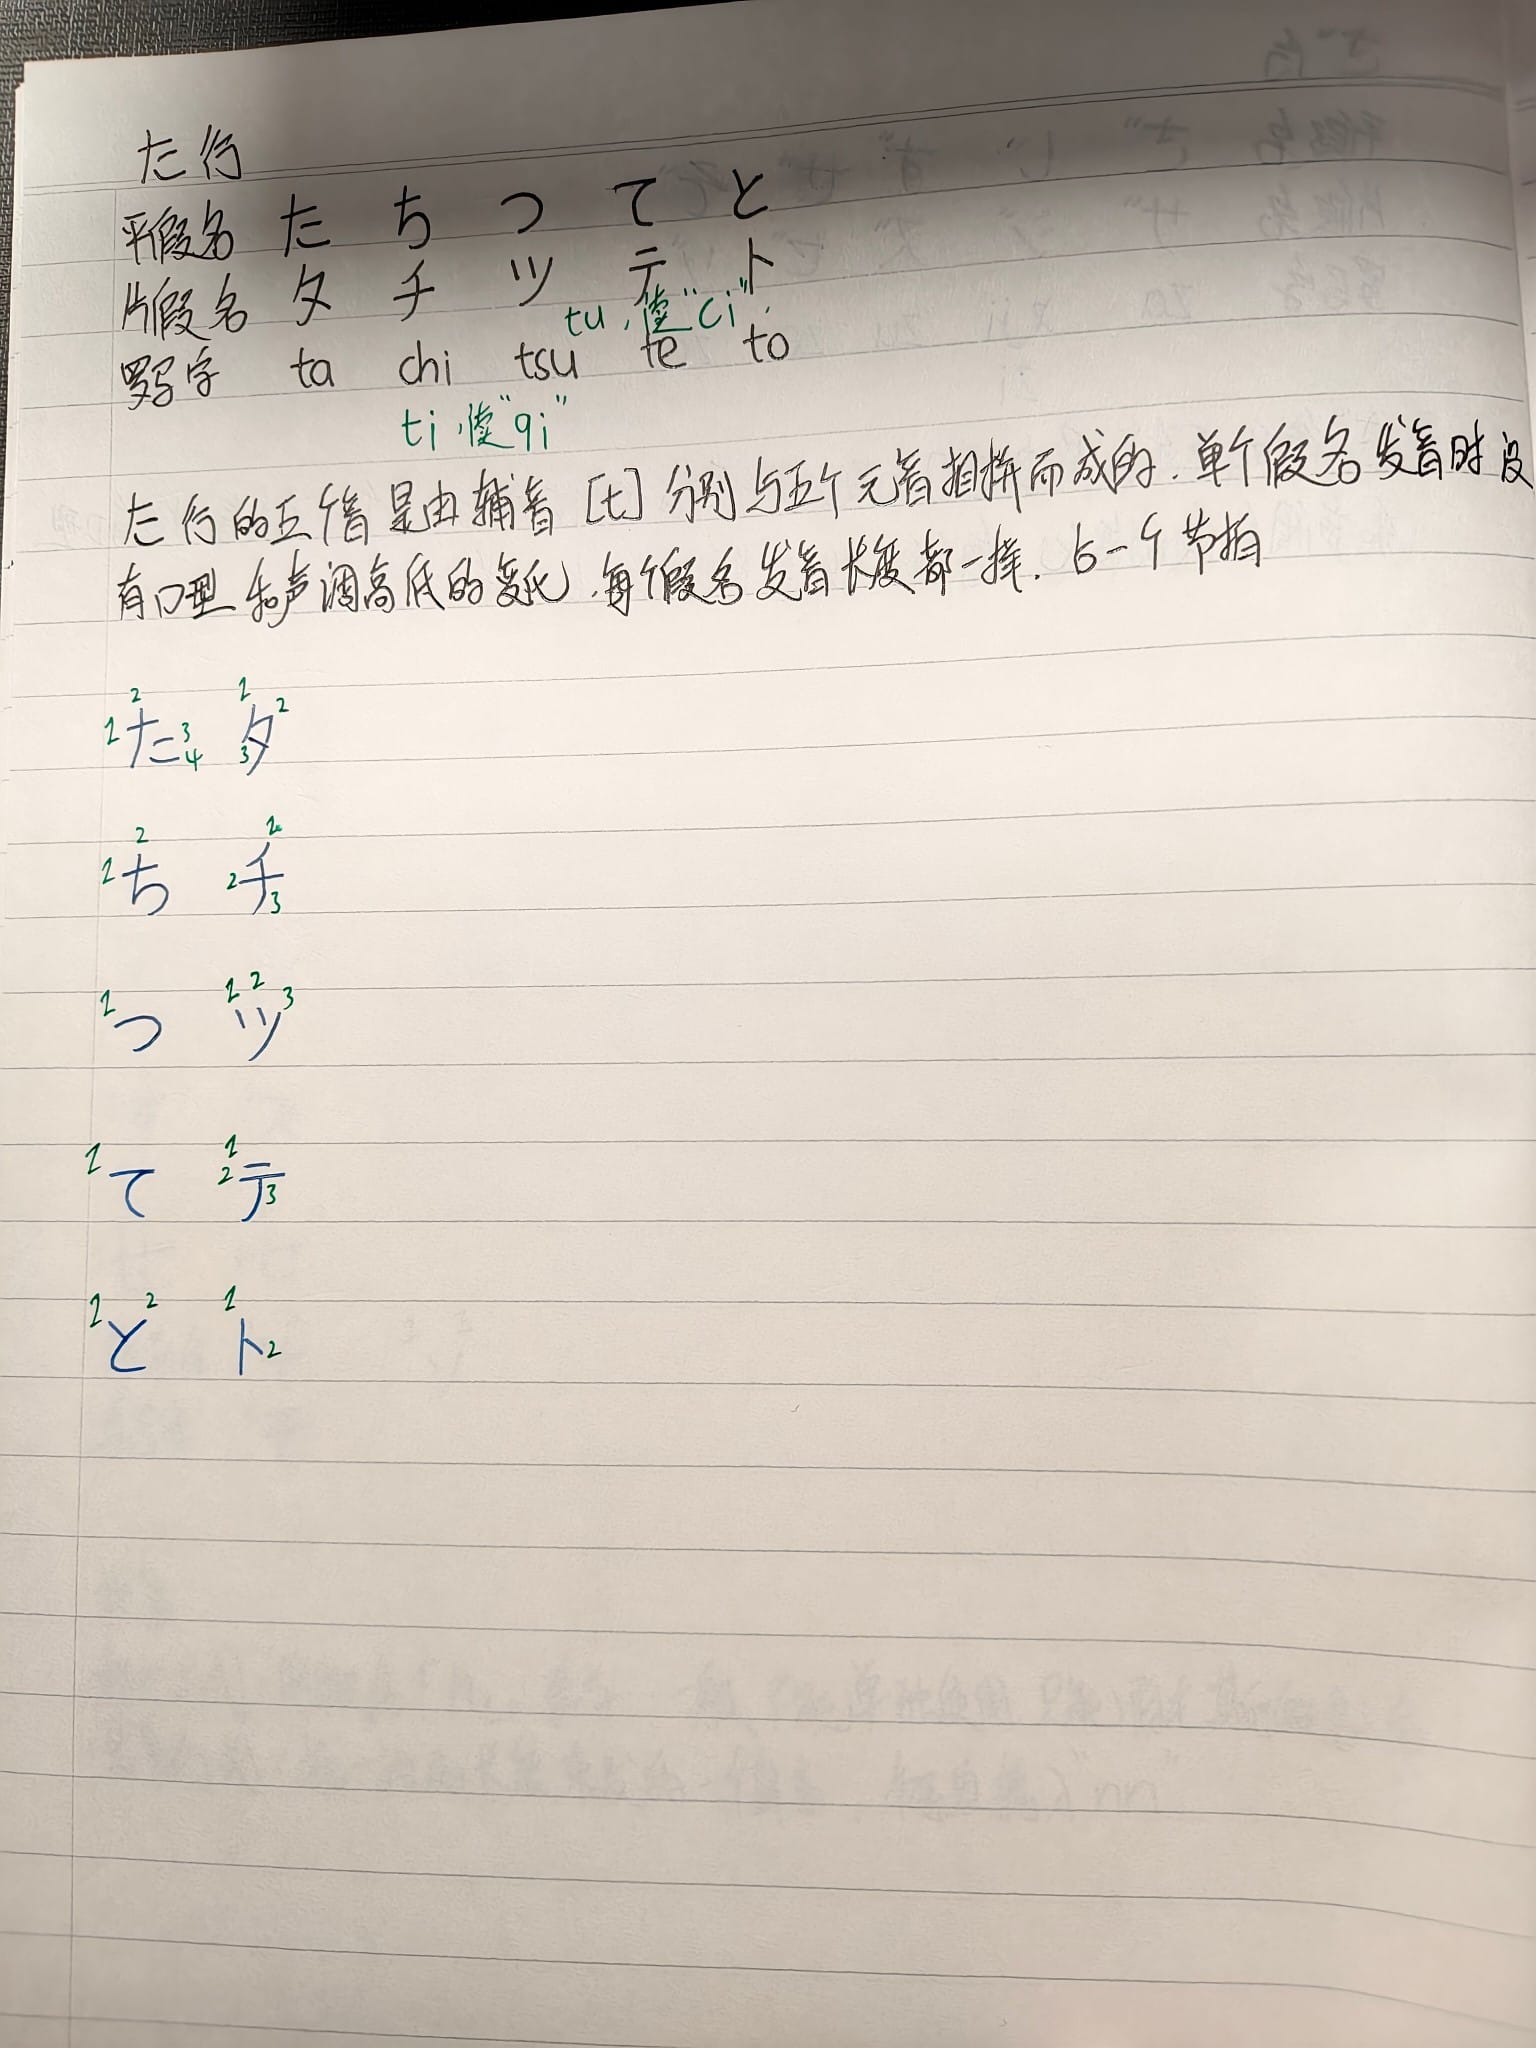 た行
平假名 た ち つ て と
片假名 タ チ ツ テ ト
tu,读"ci",
罗马字 ta chi tsu te to
ti,读"qi"
た行的五个音是由辅音[t]分别与五个元音相拼而成的.单个假名发音时没
有口型和声调高低的变化,每个假名发音长度都一样.占一个节拍
1 2 た 3 4 1 タ 2 3
1 2 ち 1 2 チ 3
1 つ 1 2 ツ 3
1 て 1 2 テ 3
1 と 2 1 ト 2